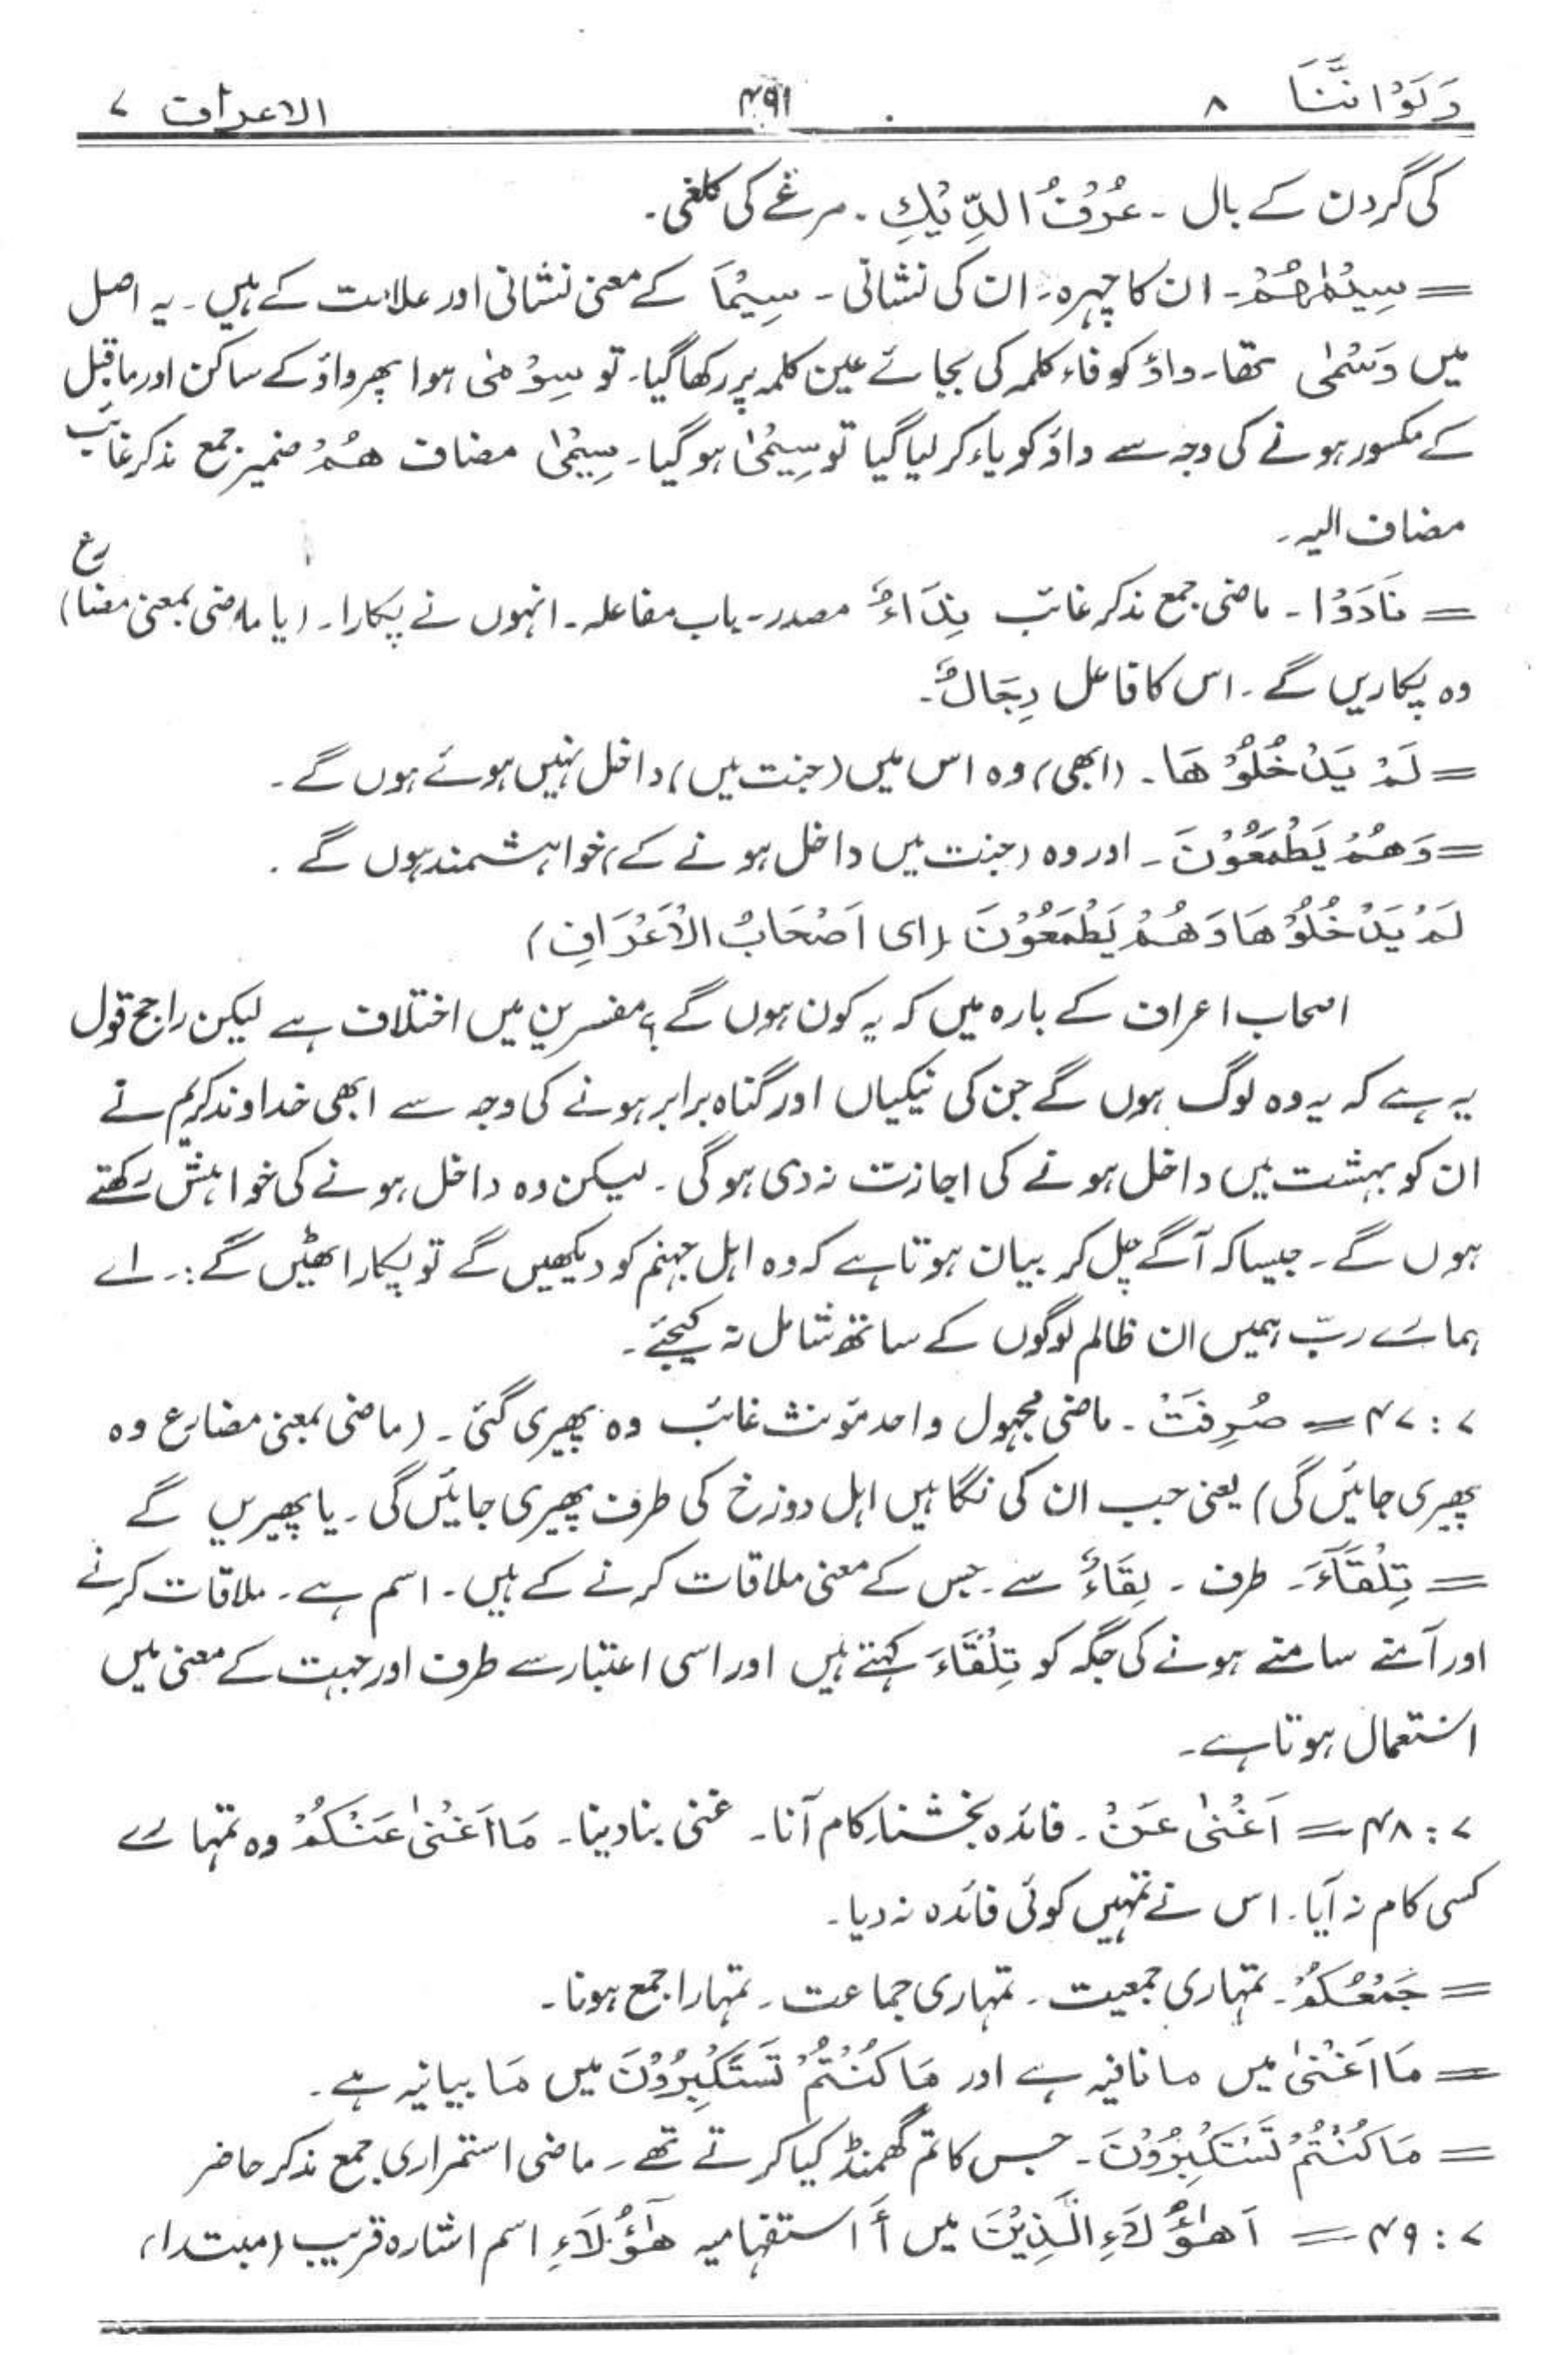 وَلَوْ اَنَّنَا ۸ ۴۹۱ الاعراف ۷
کی گردن کے بال ۔ عُرْفُ الدِّیْکِ ۔ مرغے کی کلغی ۔
= سِیْمٰھُمْ ۔ ان کا چہرہ ۔ ان کی نشانی ۔ سِیْمَا کے معنی نشانی اور علامت کے ہیں ۔ یہ اصل
میں وَسْمٰی تھا ۔ واؤ کو فاء کلمہ کی بجائے عین کلمہ پر رکھا گیا ۔ تو سِوْمٰی ہوا پھر واؤ کے ساکن اور ماقبل
کے مکسور ہونے کی وجہ سے واؤ کو یاء کر لیا گیا تو سِیْمٰی ہو گیا ۔ سِیْمٰی مضاف ھُمْ ضمیر جمع مذکر غائب
مضاف الیہ ۔
= نَادَوْا ۔ ماضی جمع مذکر غائب نِدَاءٌ مصدر ۔ باب مفاعلہ ۔ انہوں نے پکارا ۔ (یا ماضی بمعنی مضارع)
وہ پکاریں گے ۔ اس کا فاعل رِجَالٌ ۔
= لَمْ یَدْخُلُوْھَا ۔ (ابھی) وہ اس میں (جنت میں) داخل نہیں ہوئے ہوں گے ۔
= وَھُمْ یَطْمَعُوْنَ ۔ اور وہ (جنت میں داخل ہونے کے) خواہشمند ہوں گے ۔
لَمْ یَدْخُلُوْھَا وَھُمْ یَطْمَعُوْنَ (ای اَصْحَابُ الْاَعْرَافِ)
اصحاب اعراف کے بارہ میں کہ یہ کون ہوں گے ؟ مفسرین میں اختلاف ہے لیکن راجح قول
یہ ہے کہ یہ وہ لوگ ہوں گے جن کی نیکیاں اور گناہ برابر ہونے کی وجہ سے ابھی خداوند کریم نے
ان کو بہشت میں داخل ہونے کی اجازت نہ دی ہوگی ۔ لیکن وہ داخل ہونے کی خواہش رکھتے
ہوں گے ۔ جیسا کہ آگے چل کر بیان ہوتا ہے کہ وہ اہل جہنم کو دیکھیں گے تو پکار اٹھیں گے :۔ اے
ہمارے ربّ ہمیں ان ظالم لوگوں کے ساتھ شامل نہ کیجئے ۔
۷ : ۴۷ = صُرِفَتْ ۔ ماضی مجہول واحد مؤنث غائب وہ پھیری گئی ۔ (ماضی بمعنی مضارع وہ
پھیری جائیں گی) یعنی جب ان کی نگاہیں اہل دوزخ کی طرف پھیری جائیں گی ۔ یا پھیریں گے
= تِلْقَآءَ ۔ طرف ۔ لِقَاءٌ سے ۔ جس کے معنی ملاقات کرنے کے ہیں ۔ اسم ہے ۔ ملاقات کرنے
اور آمنے سامنے ہونے کی جگہ کو تِلْقَآءَ کہتے ہیں اور اسی اعتبار سے طرف اور جہت کے معنی میں
استعمال ہوتا ہے ۔
۷ : ۴۸ = اَغْنٰی عَنْ ۔ فائدہ بخشنا ۔ کام آنا ۔ غنی بنا دینا ۔ مَا اَغْنٰی عَنْکُمْ وہ تمہارے
کسی کام نہ آیا ۔ اس نے تمہیں کوئی فائدہ نہ دیا ۔
= جَمْعُکُمْ ۔ تمہاری جمعیت ۔ تمہاری جماعت ۔ تمہارا جمع ہونا ۔
= مَا اَغْنٰی میں ما نافیہ ہے اور مَا کُنْتُمْ تَسْتَکْبِرُوْنَ میں مَا بیانیہ ہے ۔
= مَا کُنْتُمْ تَسْتَکْبِرُوْنَ ۔ جس کا تم گھمنڈ کیا کرتے تھے ۔ ماضی استمراری جمع مذکر حاضر
۷ : ۴۹ = اَھٰؤُلَآءِ الَّذِیْنَ میں أَ استفہامیہ ھٰٓؤُلَاءِ اسم اشارہ قریب (مبتدا)